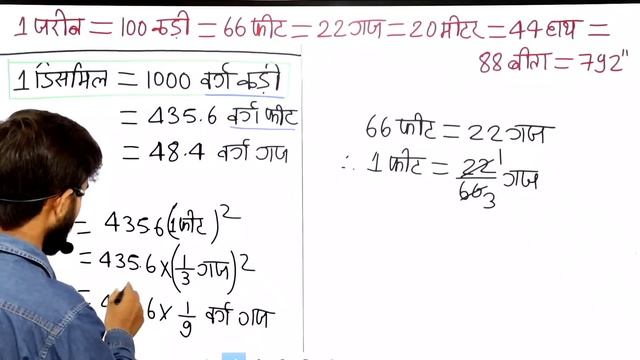 1 जरीब = 100 कड़ी = 66 फीट = 22 गज = 20 मीटर = 44 हाथ =
88 बीता = 792"
1 डिसमिल = 1000 वर्ग कड़ी
= 435.6 वर्ग फीट
= 48.4 वर्ग गज
= 435.6 (1 फीट)²
= 435.6 × (1/3 गज)²
= 6 × 1/9 वर्ग गज
66 फीट = 22 गज
∴ 1 फीट = 22 1/66 3 गज